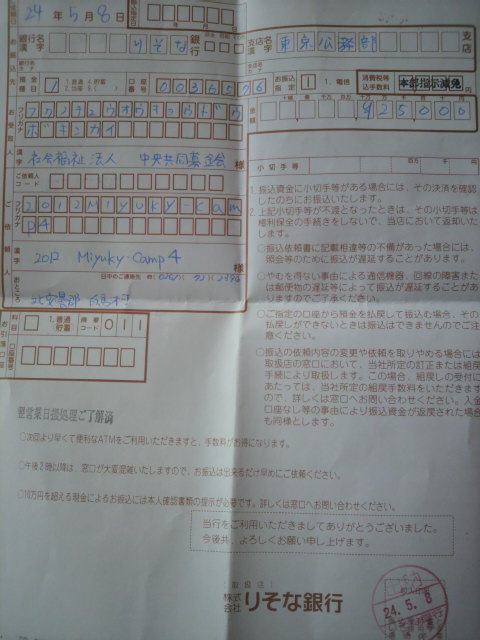 24年5月8日
銀行名 漢字 りそな 銀行
支店名 漢字 東京公務部 支店
預金種目 1 1.普通 4.貯蓄 2.当座 9.( ) 口座番号 0036576
お振込指定 1 1.電信 消費税等込手数料 本部指示減免 円
金額 ¥25000
フリガナ フクシチュウオウキョウドウ
ボキンカイ
お受取人 漢字 社会福祉法人 中央共同募金会 様
小切手等
ご依頼人コード
フリガナ 2012MIYUKY-CAM
P4
ご依頼人 漢字 2012 Miyuky・Camp 4 様
日中のご連絡先
おところ 北安曇郡 白馬村
1.振込資金に小切手等がある場合には、その決済を確認したのちにお振込いたします。
2.上記小切手等が不渡となったときは、その小切手等は権利保全の手続きをしないで、当店において返却いたします。
○振込依頼書に記載相違等の不備があった場合には、照会等のために振込が遅延することがあります。
○やむを得ない事由による通信機器、回線の障害または郵便物の遅延等によって振込が遅延することがありますのでご了承ください。
○ご指定の口座から預金を払戻して振込む場合、その払戻しができないときは振込はできませんのでご注意ください。
○振込の依頼内容の変更や依頼を取りやめる場合には取扱店の窓口において、当社所定の訂正または組戻手続により取扱します。この場合、組戻しの受付にあたっては、当社所定の組戻手数料をいただきますので、詳しくは窓口へお問い合わせください。入金口座なし等の事由により振込資金が返戻された場合も同様とします。
お引落口座 科目 1.普通 貯蓄 店番コード 011
口座番号
翌営業日扱処理ご了解済
○次回より早くて便利なATMをご利用いただきますと、手数料がお得になります。
○午後2時以降は、窓口が大変混雑いたしますので、お振込は出来るだけ早めにご依頼ください。
○10万円を超える現金によるお振込には本人確認書類の提示が必要です。詳しくは窓口へお問い合わせください。
当行をご利用いただきましてありがとうございました。
今後共、よろしくお願い申し上げます。
〔取扱店〕
株式会社 りそな銀行
24.5.8